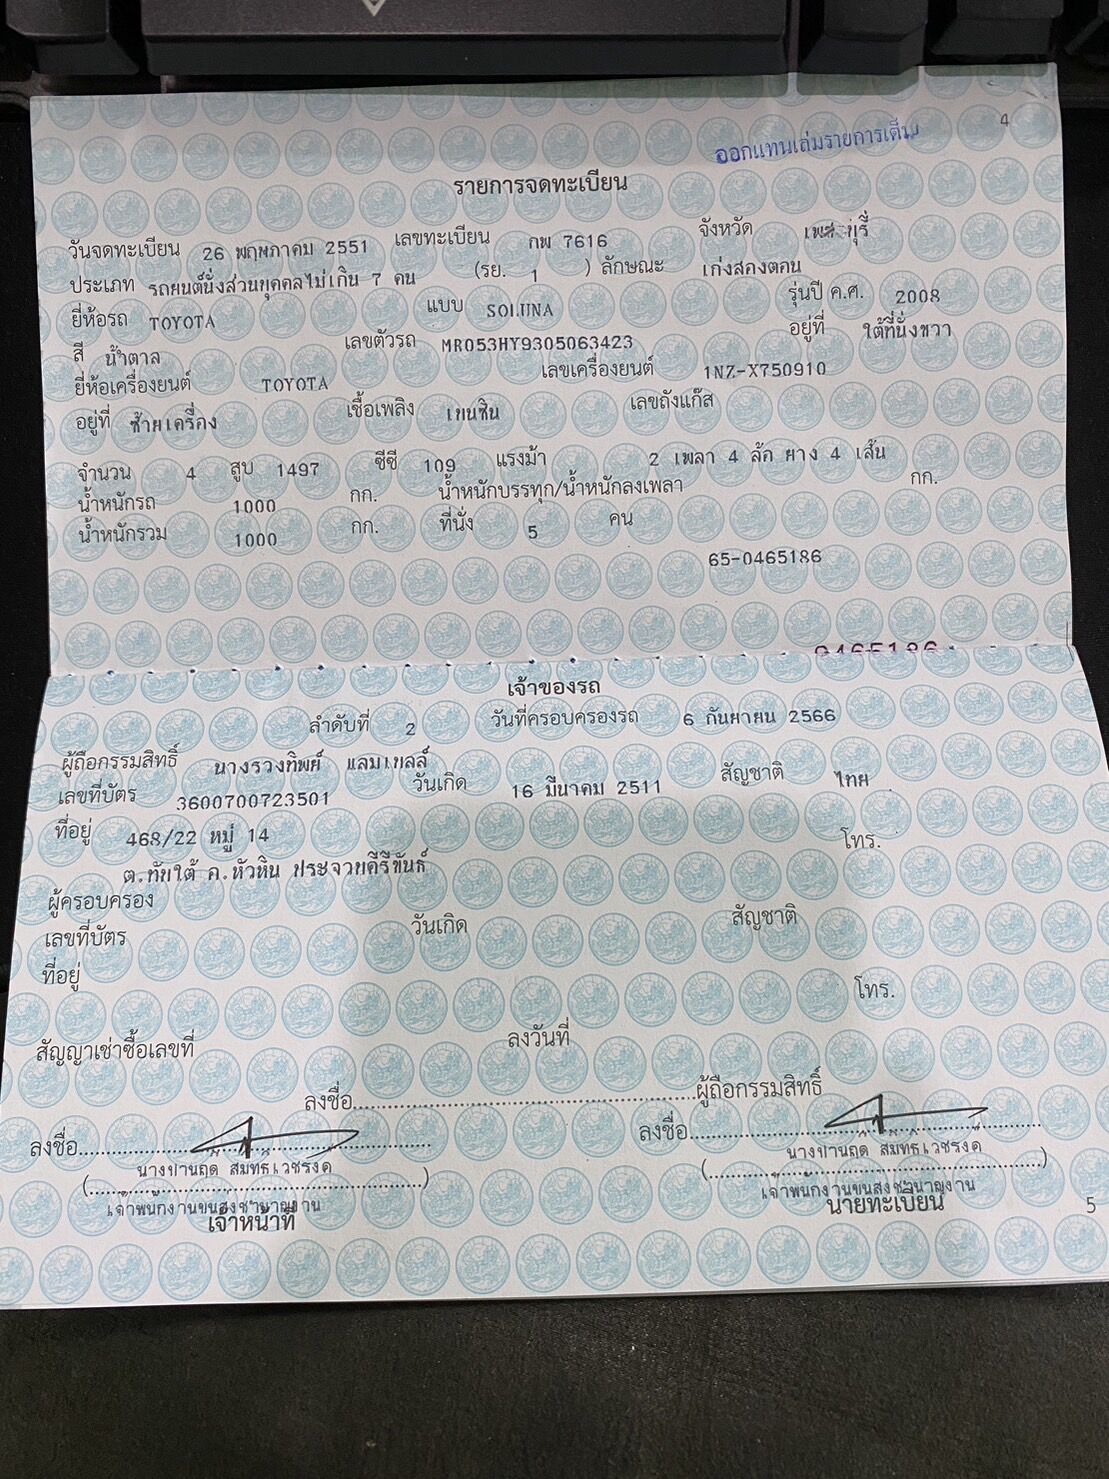 4
ออกแทนเล่มรายการเต็ม
รายการจดทะเบียน
วันจดทะเบียน 26 พฤษภาคม 2551 เลขทะเบียน กพ 7616 จังหวัด เพชรบุรี
ประเภท รถยนต์นั่งส่วนบุคคลไม่เกิน 7 คน (รย. 1 ) ลักษณะ เก๋งสองตอน
ยี่ห้อรถ TOYOTA แบบ SOLUNA รุ่นปี ค.ศ. 2008
สี น้ำตาล เลขตัวรถ MR053HY9305063423 อยู่ที่ ใต้ที่นั่งขวา
ยี่ห้อเครื่องยนต์ TOYOTA เลขเครื่องยนต์ 1NZ-X750910
อยู่ที่ ซ้ายเครื่อง เชื้อเพลิง เบนซิน เลขถังแก๊ส
จำนวน 4 สูบ 1497 ซีซี 109 แรงม้า 2 เพลา 4 ล้อ ยาง 4 เส้น
น้ำหนักรถ 1000 กก. น้ำหนักบรรทุก/น้ำหนักลงเพลา กก.
น้ำหนักรวม 1000 กก. ที่นั่ง 5 คน
65-0465186
0465186
เจ้าของรถ
ลำดับที่ 2 วันที่ครอบครองรถ 6 กันยายน 2566
ผู้ถือกรรมสิทธิ์ นางรวงทิพย์ แลมเบลล์
เลขที่บัตร 3600700723501 วันเกิด 16 มีนาคม 2511 สัญชาติ ไทย
ที่อยู่ 468/22 หมู่ 14 โทร.
ต.ทับใต้ อ.หัวหิน ประจวบคีรีขันธ์
ผู้ครอบครอง
เลขที่บัตร วันเกิด สัญชาติ
ที่อยู่
โทร.
สัญญาเช่าซื้อเลขที่ ลงวันที่
ลงชื่อ ผู้ถือกรรมสิทธิ์
ลงชื่อ ลงชื่อ
เจ้าพนักงานขนส่งชำนาญงาน เจ้าพนักงานขนส่งชำนาญงาน
เจ้าหน้าที่ นายทะเบียน
5